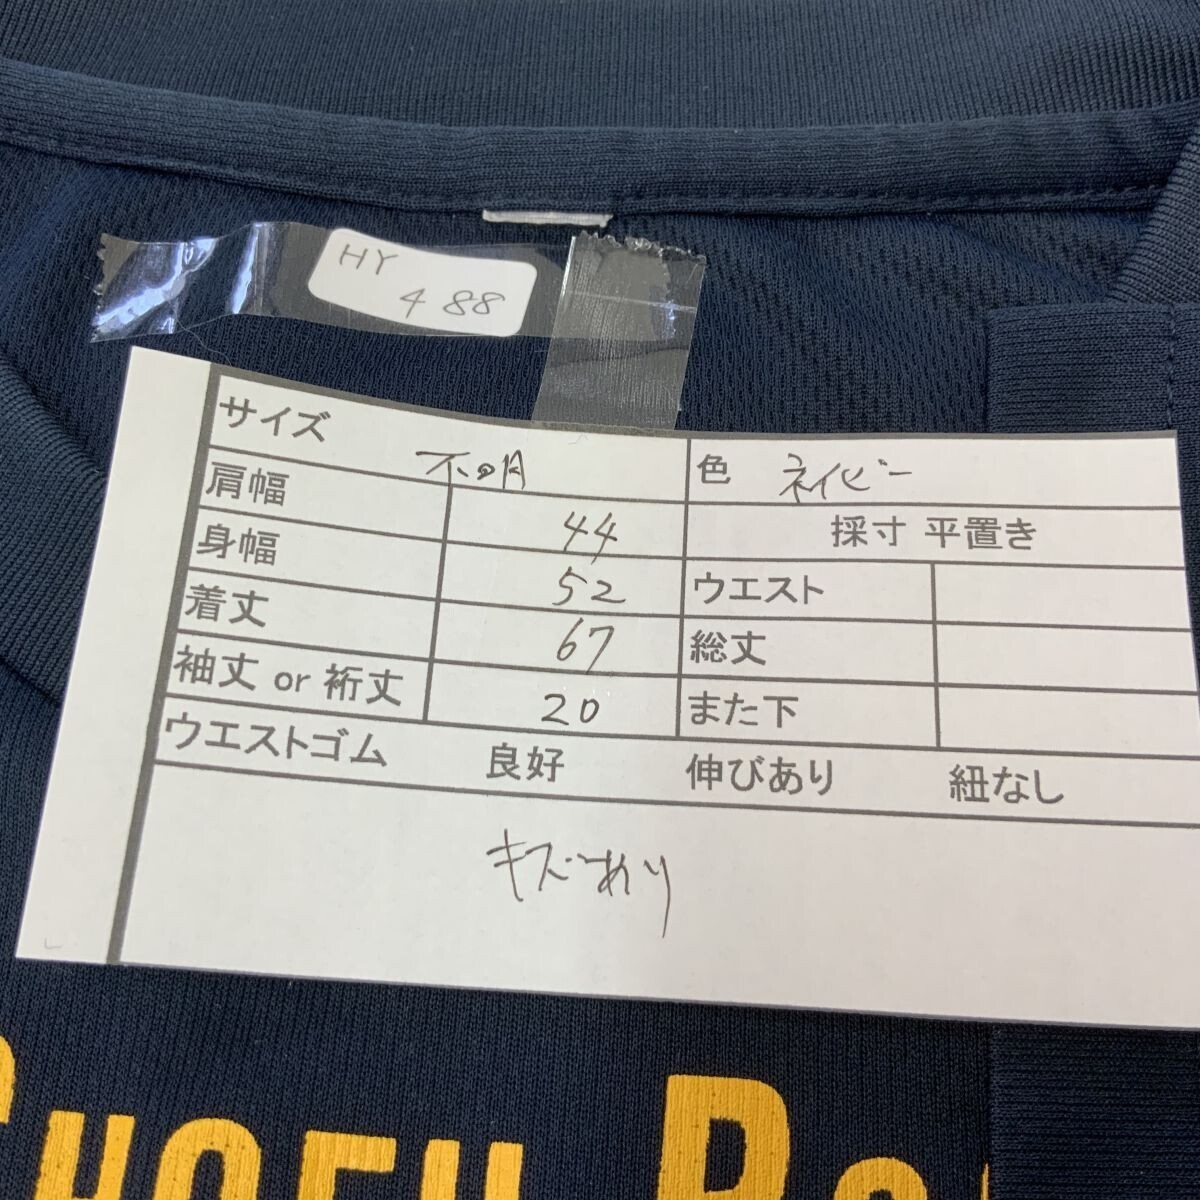 HY
488
サイズ 不明 色 ネイビー
肩幅 44 採寸 平置き
身幅 52 ウエスト
着丈 67 総丈
袖丈 or 裄丈 20 また下
ウエストゴム 良好 伸びあり 紐なし
キズあり